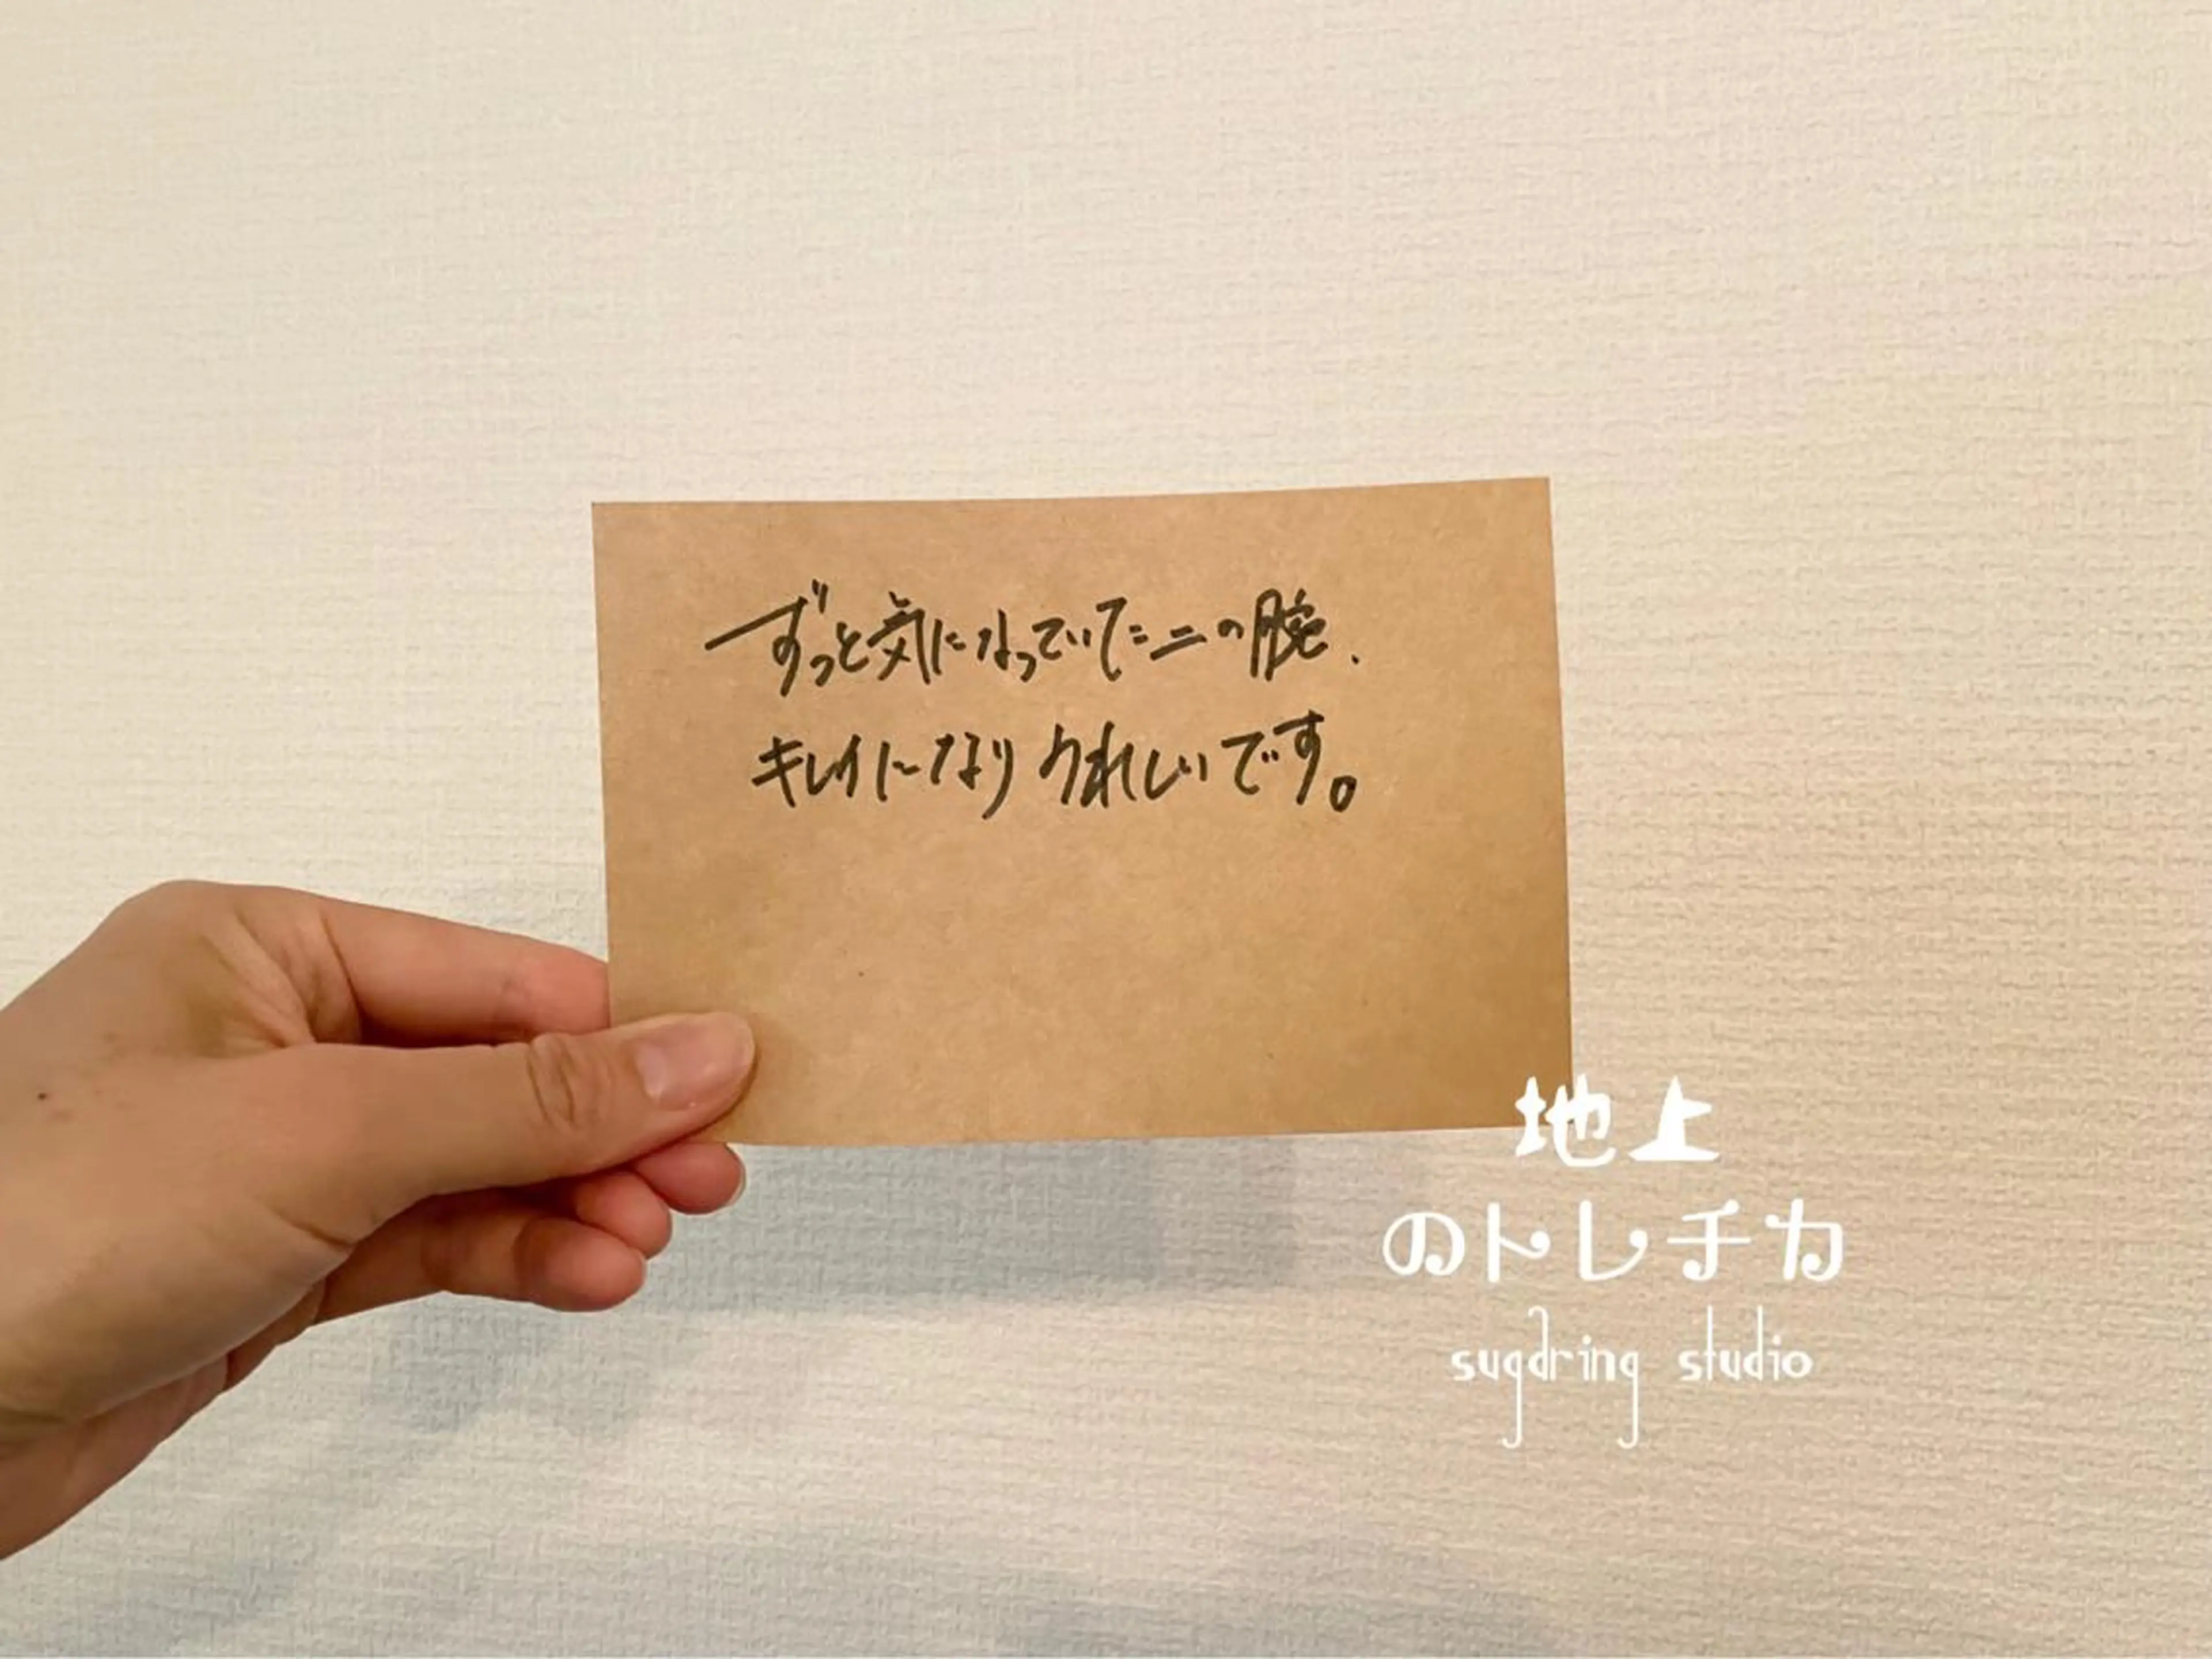 ずっと気になっていた二の腕、
キレイになりうれしいです。
地上
のトレチカ
sugaring studio